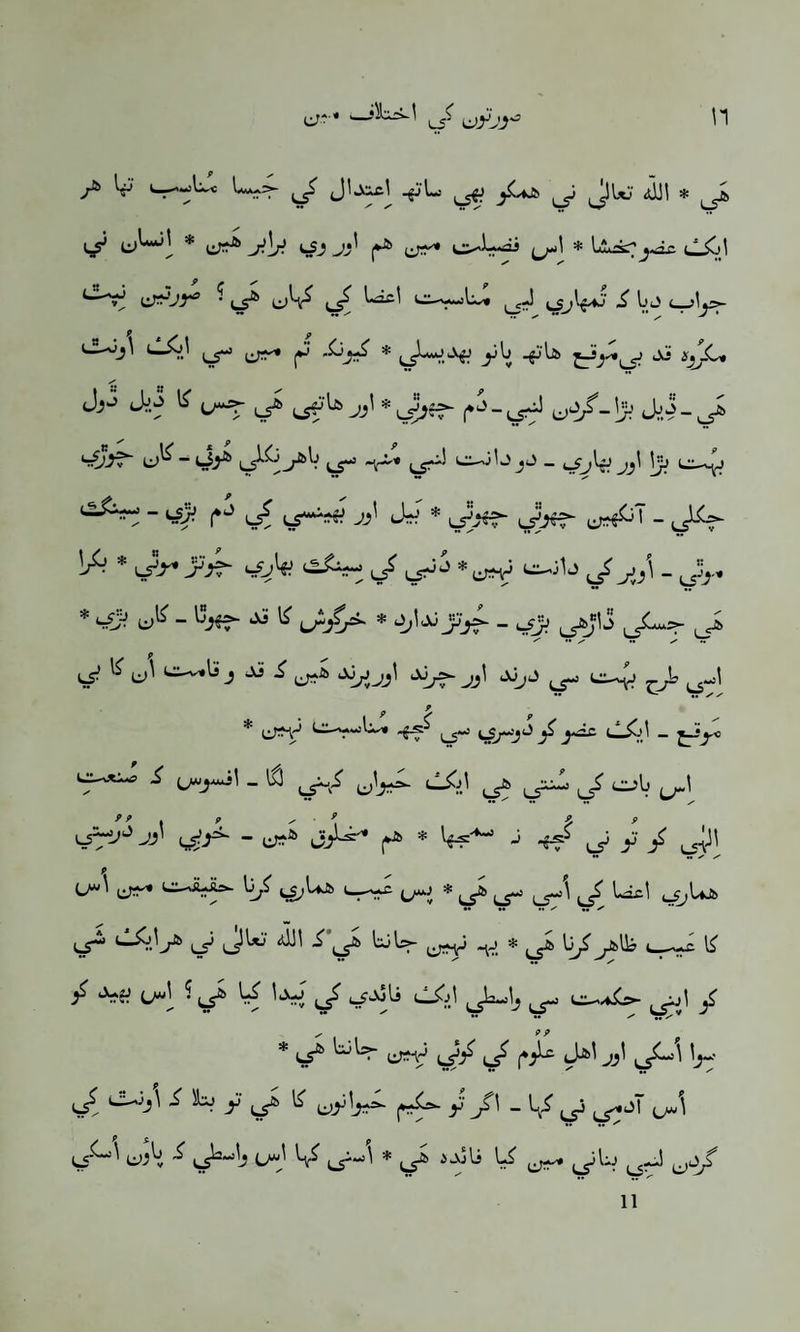 صورتوں کي اختلاف میں ٨١
هي * الله تعالي ني همکو بهي ساتھہ اعتدال کي جیسا مناسب تھا هر
ایک عضو بخشا * اس فضیلت میں هم اور وي برابر هیں * انسان ني
جواب دیا که تمهاري لیي مناسبت اعضا کي کهاں هي ؟ صورتیں نپت
مکروہ قد بیموقع هاتھہ پانو بهدیسلي * کیونکه تم میں سي ایک اونٹ
هي - ڈیل بڑا گردن لنبي - دم چھوٹي * اور هاتهي هي جس کا ڈیل ڈول
بہت بڑا اور بهاري - دو دانت لنبي منہہ سي باهر نکلي هوي - کان چوڑي
چکلي - آنکھیں چھوٹي چھوٹي * بیل اور بھینسي کي دم بڑي - سینگ
موٹي - اوپر کي دانت نہیں * دنبي کي سینگ بهاري چوتڑ موٹي * بکرا
هي جسکي ڈاڑهي بڑي - چوتڑ ندارد * خرگوش کا قد چھوٹا - کان بڑي *
اسي طرح بہت سي درند اور چرند اور پرند هیں که قد و قامت اُن کا بي
موقع - ایک عضو کو دوسري سي کچھہ مناسبت نہیں *
اس بات کي سنتي هي ایک حیوان کہني لگا - افسوس که صنعت
الٰہي کو تو ني کچھہ نہ سمجها * هم مخلوق هیں - خوبي اور درستي
هماري اعضا کي اُسي سي هي * پس عیب هماري کرنا خلقت میں اُس
کا عیب ظاهر کرنا هي * یہ نہیں جانتا هي که الله تعالي ني هر ایک شي
کو اپني حکمت سي واسطي ایک فایدي کي پیدا کیا هي ؟ اس بهید کو
سوا اُسکي اور اهل علوم کي کوئي نہیں جانتا هي *
اُس آدمي ني کہا - اگر تو حکیم حیوانوں کا هي تو بتلا که اونٹ کي
گردن لنبي بناني میں کیا فایدہ هي * اُسني کہا اس واسطي که پانوں اُسکي
11